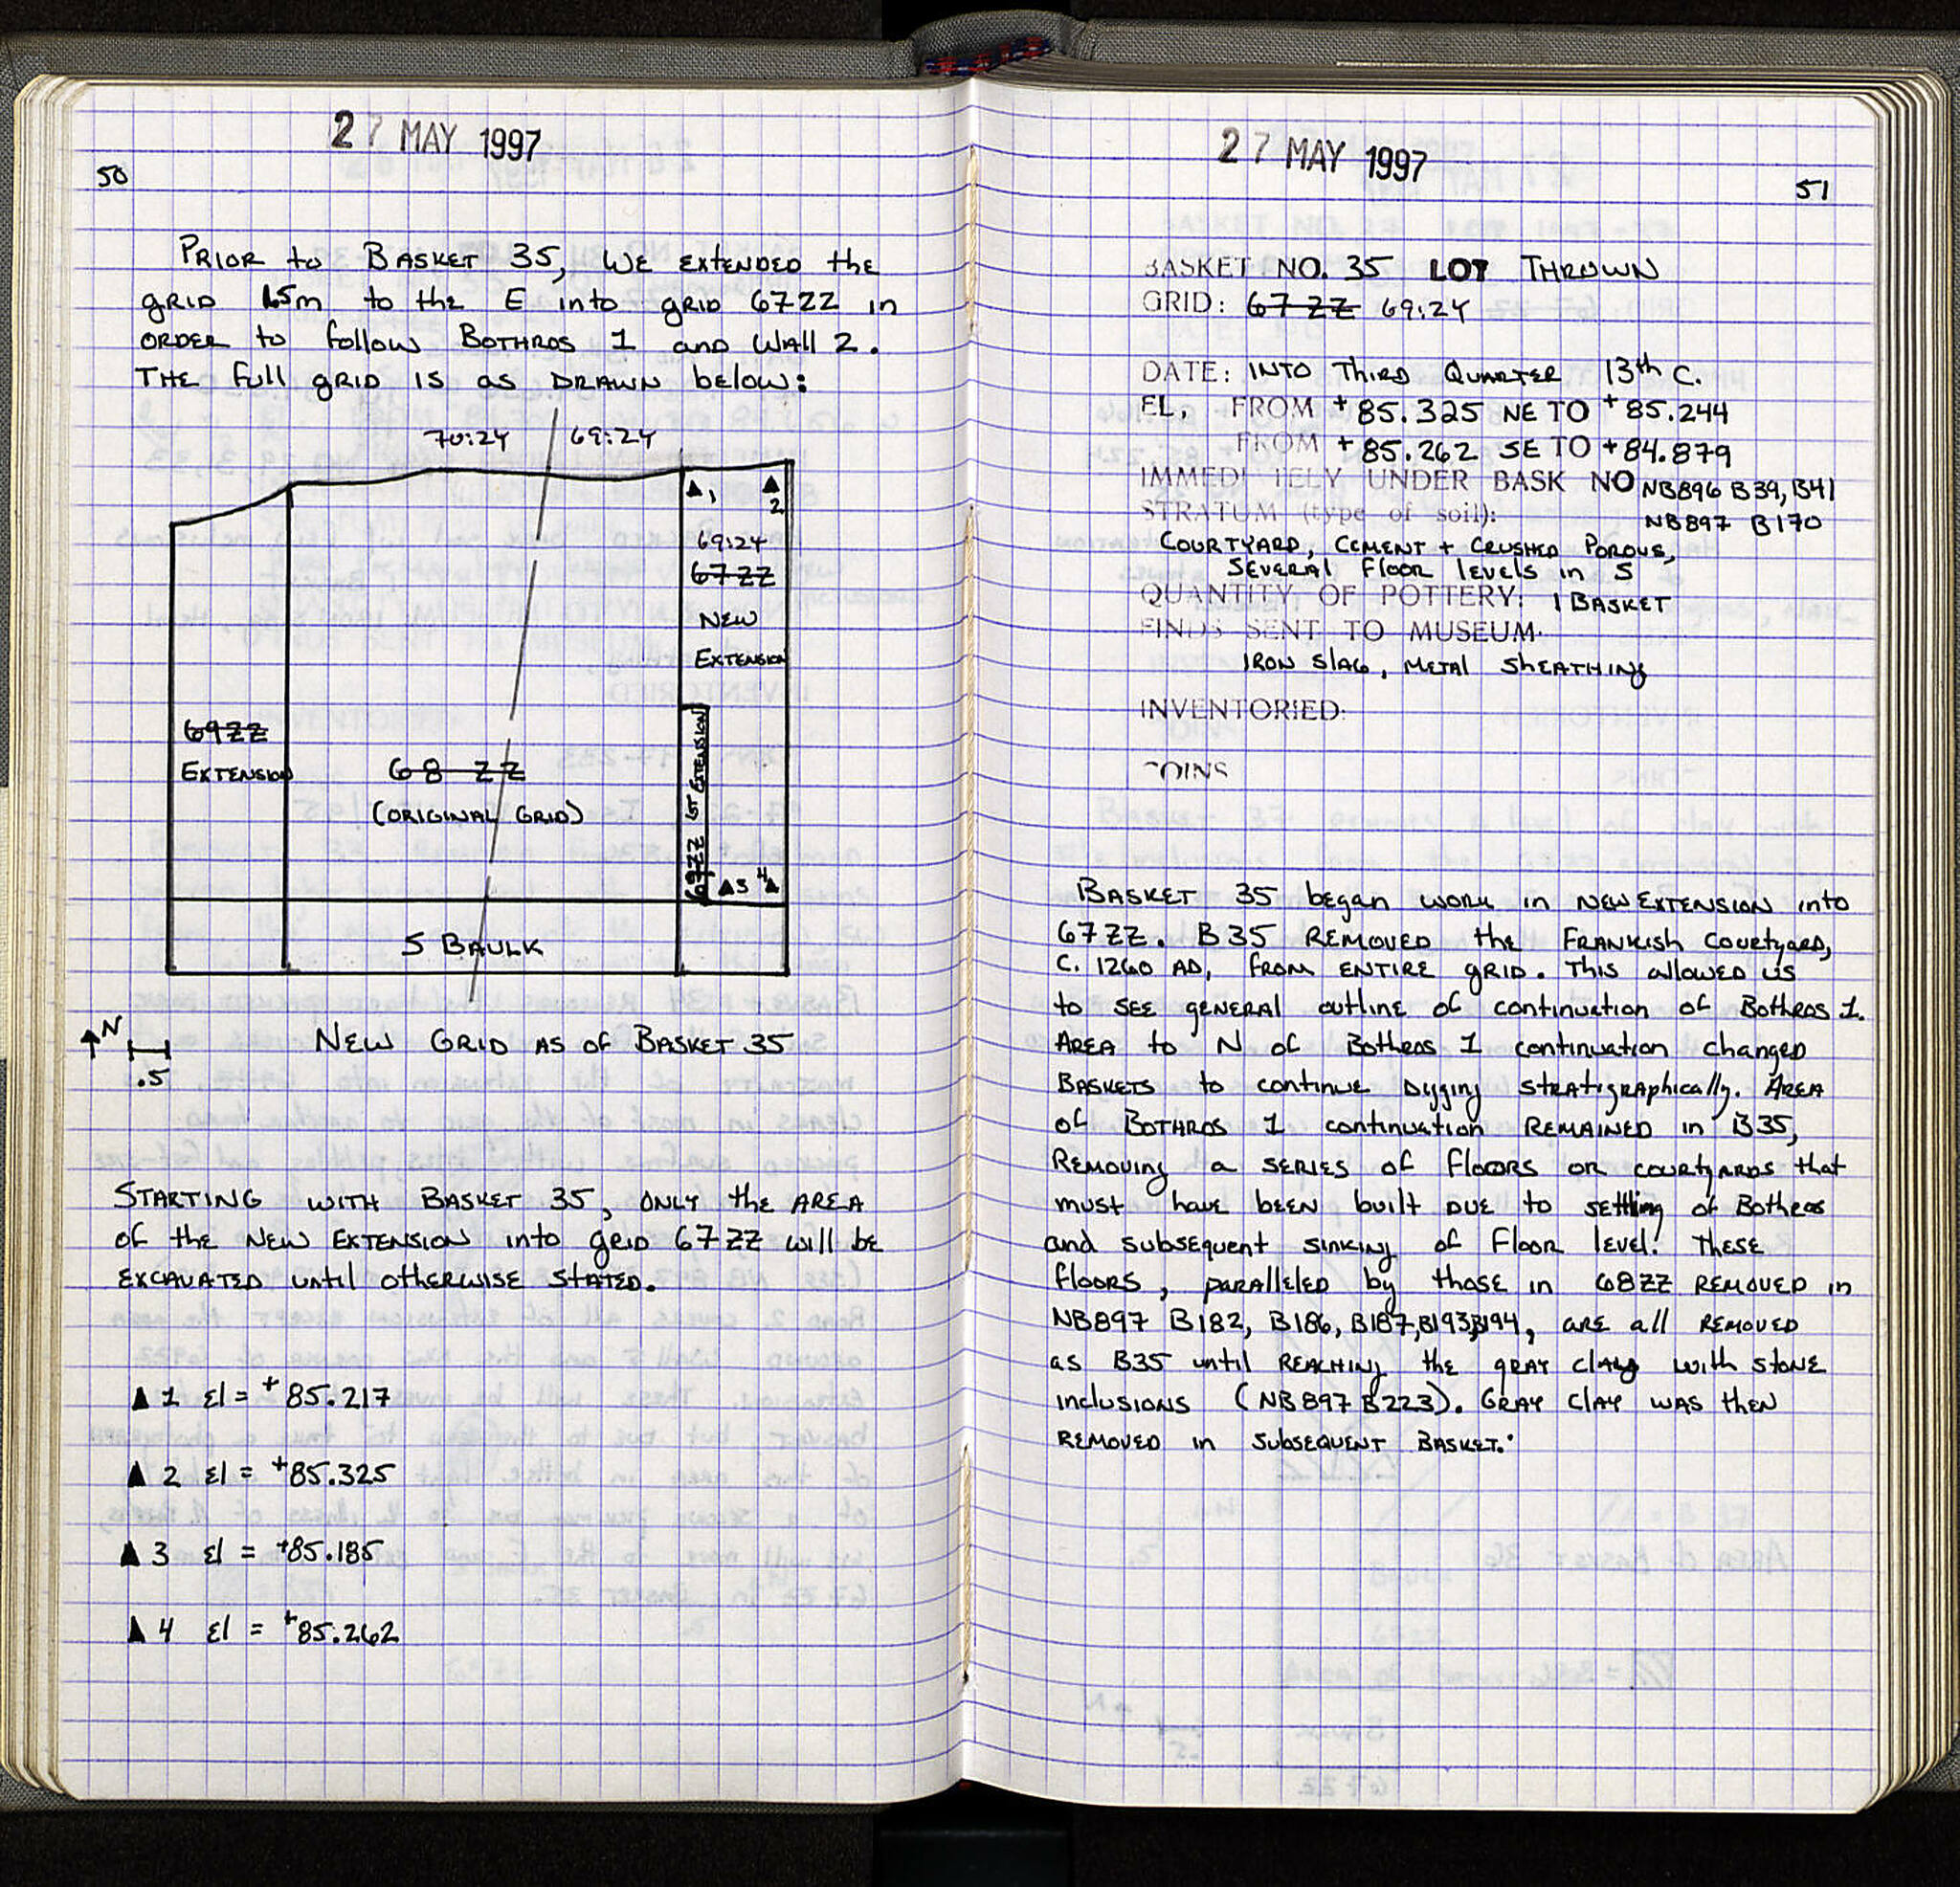 27 MAY 1997
50
PRIOR to BASKET 35, WE EXTENDED the
grid 1.5m to the E into grid 67ZZ in
ORDER to follow BOTHROS 1 and WALL 2.
THE full grid is as DRAWN below:
70:24 69:24
▲1 ▲2
69:24
67ZZ
NEW
EXTENSION
69ZZ
EXTENSION
68 ZZ
(ORIGINAL GRID)
67ZZ 1st EXTENSION
▲3 4▲
S BAULK
N
.5
NEW GRID AS of BASKET 35
STARTING WITH BASKET 35, ONLY the AREA
of the NEW EXTENSION into grid 67ZZ will be
EXCAVATED until otherwise stated.
▲1 El = +85.217
▲2 El = +85.325
▲3 El = +85.185
▲4 El = +85.262
27 MAY 1997
51
BASKET NO. 35 LOT THROWN
GRID: 67 ZZ 69:24
DATE: INTO Third QUARTER 13th C.
EL, FROM +85.325 NE TO +85.244
FROM +85.262 SE TO +84.879
IMMEDI TELY UNDER BASK NO NB896 B39, B41
NB897 B170
STRATUM (type of soil):
COURTYARD, CEMENT + CRUSHED POROUS,
SEVERAL floor levels in S
QUANTITY OF POTTERY: 1 BASKET
FINDS SENT TO MUSEUM.
IRON Slag, METAL SHEATHING
INVENTORIED:
COINS
BASKET 35 began work in NEW EXTENSION into
67ZZ. B35 REMOVED the FRANKISH Courtyard,
c. 1260 AD, from ENTIRE grid. This allowed us
to SEE general outline of continuation of Bothros 1.
AREA to N of Bothros 1 continuation changed
BASKETS to continue digging stratigraphically. AREA
of BOTHROS 1 continuation REMAINED in B35,
REMOVING a SERIES of floors or courtyards that
must have been built DUE to settling of Bothros
and subsequent sinking of Floor level. These
floors, paralleled by those in 68ZZ REMOVED in
NB897 B182, B186, B187, B193, B194, are all REMOVED
as B35 until REACHING the gray clay with stone
inclusions (NB897 B223). GRAY CLAY was then
REMOVED in subsequent BASKET.